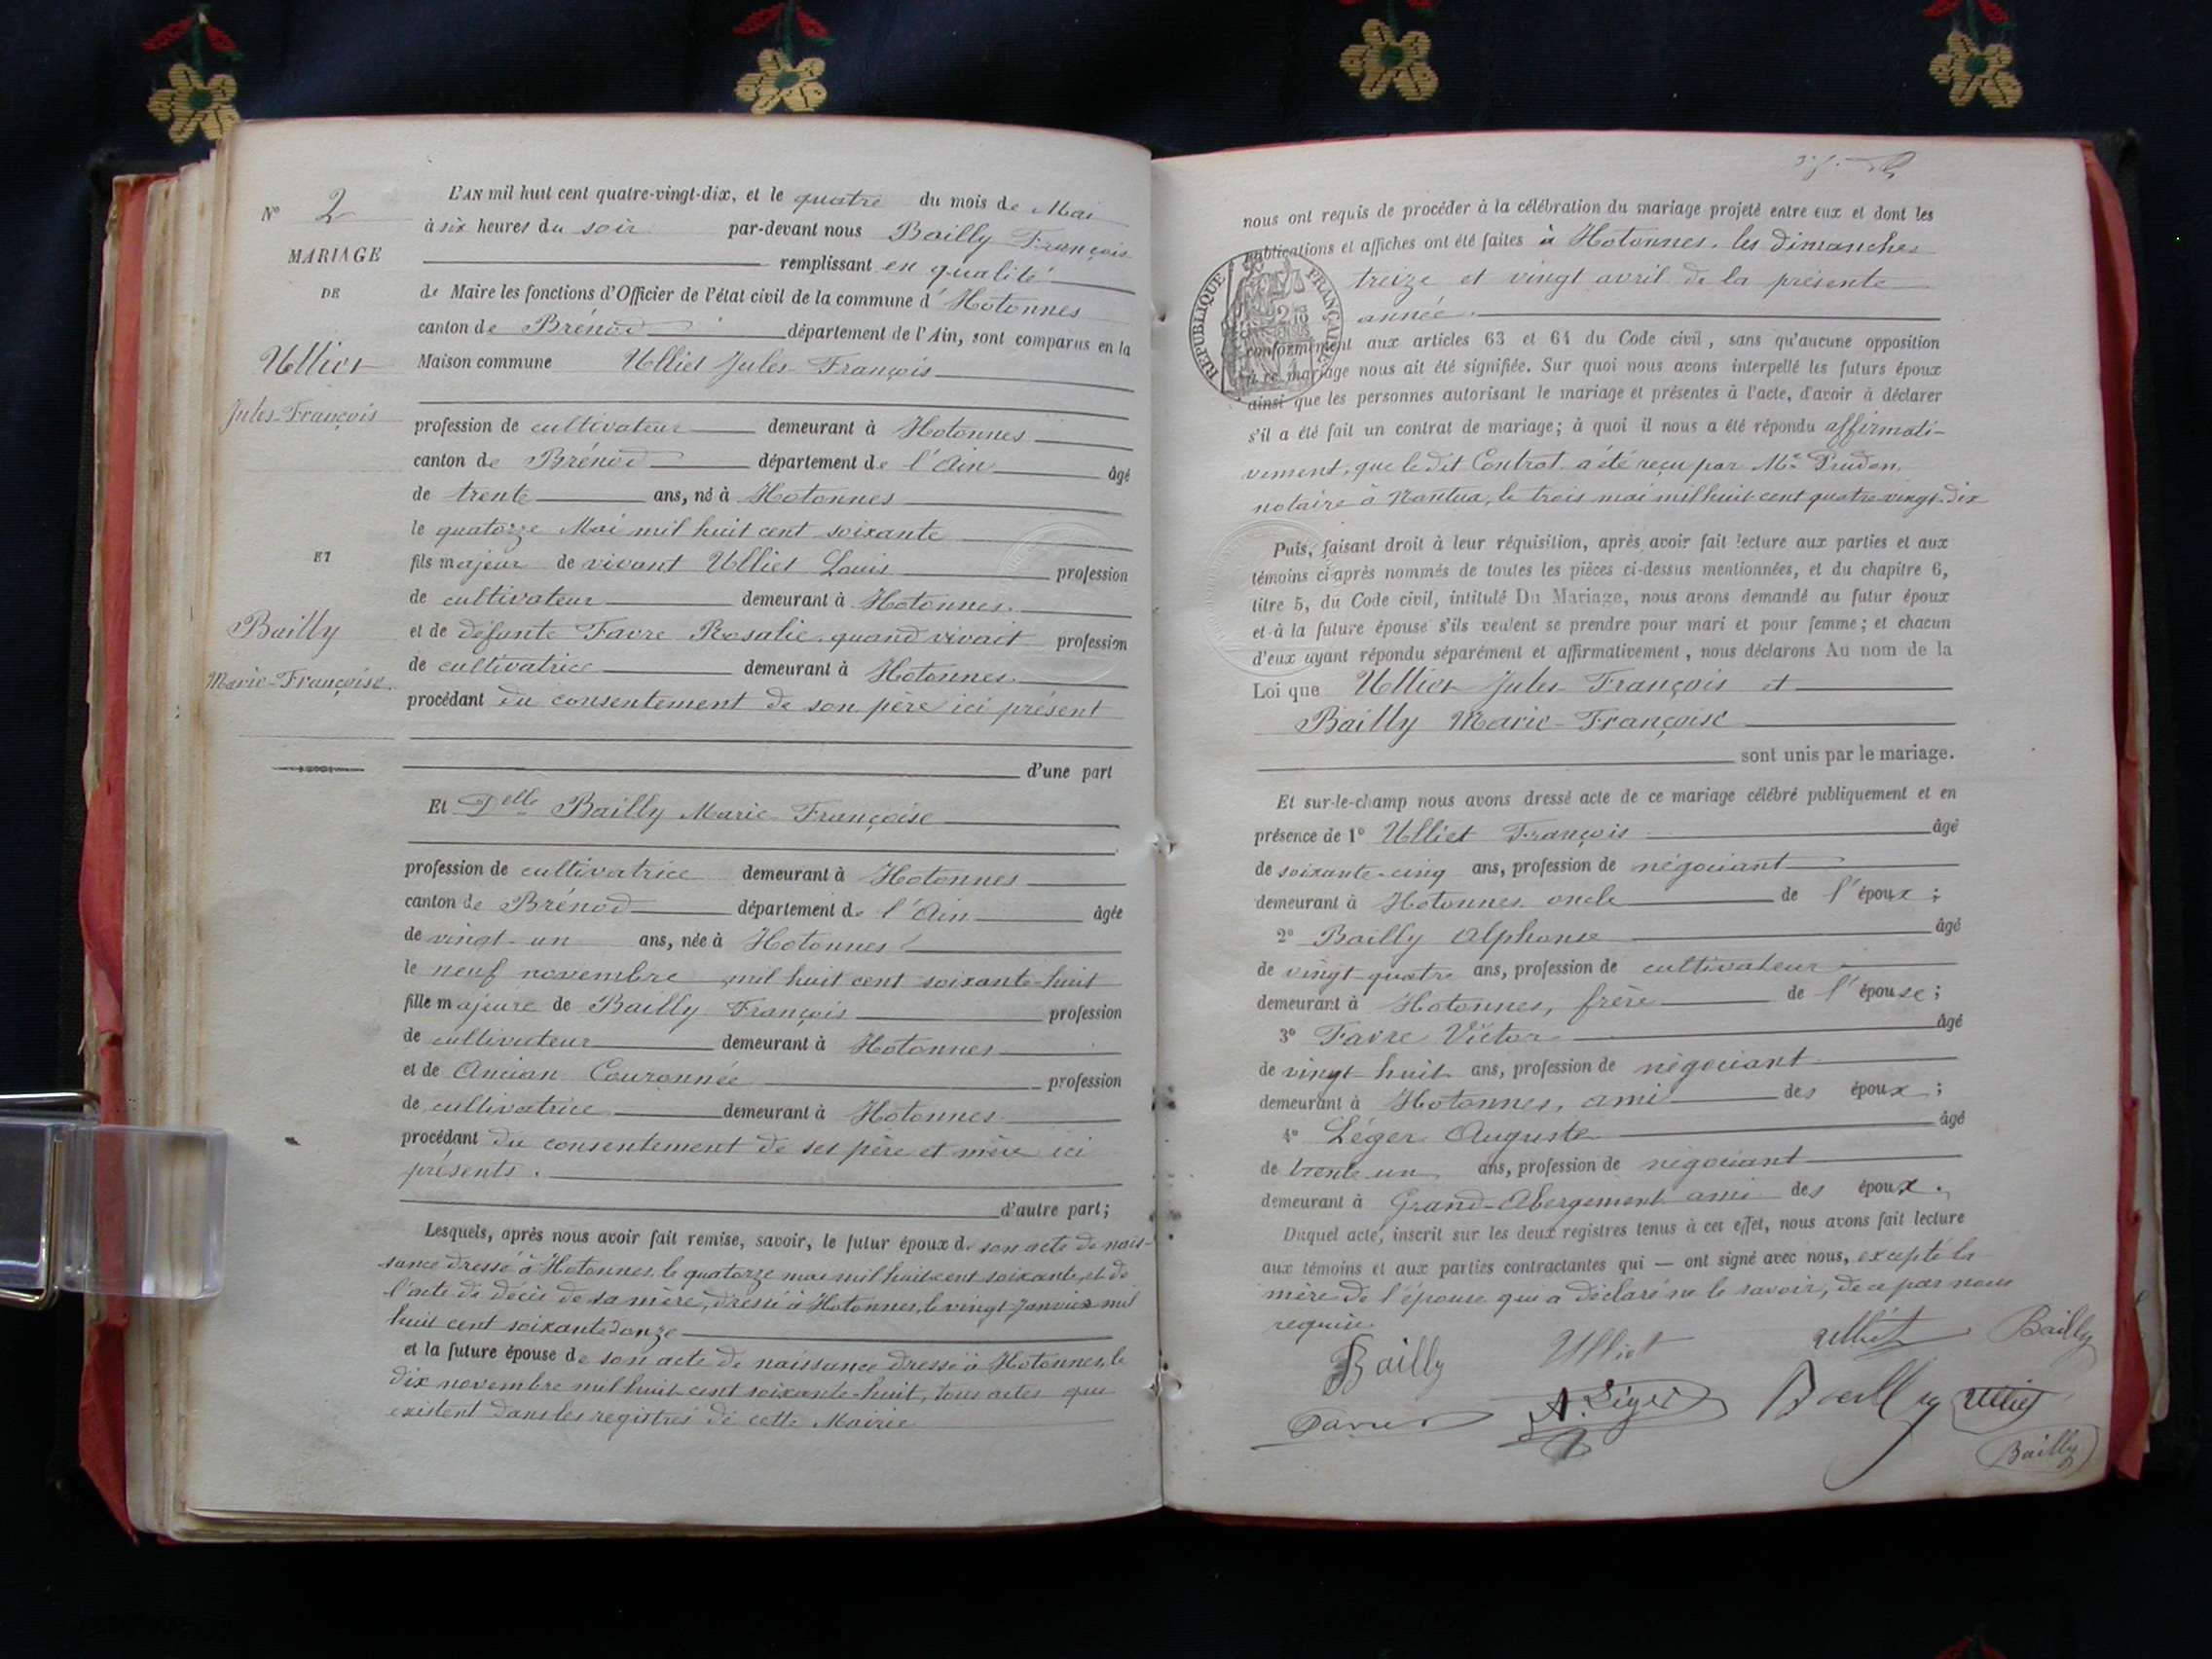 N° 2
MARIAGE
DE
Ulliet
Jules-François
ET
Bailly
Marie-Françoise.
L'AN mil huit cent quatre-vingt-dix, et le quatre du mois de Mai
à six heures du soir par-devant nous Bailly François
remplissant en qualité
de Maire les fonctions d'Officier de l'état civil de la commune d'Hotonnes
canton de Brénod département de l'Ain, sont comparus en la
Maison commune Ulliet Jules François
profession de cultivateur demeurant à Hotonnes
canton de Brénod département de l'Ain âgé
de trente ans, né à Hotonnes
le quatorze Mai mil huit cent soixante
fils majeur de vivant Ulliet Louis profession
de cultivateur demeurant à Hotonnes.
et de défunte Favre Rosalie quand vivait profession
de cultivatrice demeurant à Hotonnes.
procédant du consentement de son père ici présent
d'une part
Et Delle Bailly Marie Françoise
profession de cultivatrice demeurant à Hotonnes
canton de Brénod département de l'Ain âgée
de vingt-un ans, née à Hotonnes
le neuf novembre mil huit cent soixante-huit
fille majeure de Bailly François profession
de cultivateur demeurant à Hotonnes
et de Ancian Couronnée profession
de cultivatrice demeurant à Hotonnes
procédant du consentement de ses père et mère ici
présents.
d'autre part;
Lesquels, après nous avoir fait remise, savoir, le futur époux de son acte de nais-
sance dressé à Hotonnes, le quatorze mai mil huit cent soixante, et de
l'acte de décès de sa mère, dressé à Hotonnes, le vingt Janvier mil
huit cent soixante donze
et la future épouse de son acte de naissance dressé à Hotonnes, le
dix novembre mil huit cent soixante-huit, tous actes que
existent dans les registres de cette Mairie
nous ont requis de procéder à la célébration du mariage projeté entre eux et dont les
publications et affiches ont été faites à Hotonnes, les dimanches
treize et vingt avril de la présente
année.
RÉPUBLIQUE FRANÇAISE
conformément aux articles 63 et 64 du Code civil, sans qu'aucune opposition
à ce mariage nous ait été signifiée. Sur quoi nous avons interpellé les futurs époux
ainsi que les personnes autorisant le mariage et présentes à l'acte, d'avoir à déclarer
s'il a été fait un contrat de mariage; à quoi il nous a été répondu affirmati-
vement, que le dit Contrat a été reçu par Me Prudon,
notaire à Nantua, le trois mai mil huit cent quatre vingt-dix
Puis, faisant droit à leur réquisition, après avoir fait lecture aux parties et aux
témoins ci-après nommés de toutes les pièces ci-dessus mentionnées, et du chapitre 6,
titre 5, du Code civil, intitulé Du Mariage, nous avons demandé au futur époux
et à la future épouse s'ils veulent se prendre pour mari et pour femme; et chacun
d'eux ayant répondu séparément et affirmativement, nous déclarons Au nom de la
Loi que Ulliet Jules François et
Bailly Marie-Françoise
sont unis par le mariage.
Et sur-le-champ nous avons dressé acte de ce mariage célébré publiquement et en
présence de 1° Ulliet François âgé
de soixante-cinq ans, profession de négociant
demeurant à Hotonnes, oncle de l'époux;
2° Bailly Alphonse âgé
de vingt-quatre ans, profession de cultivateur
demeurant à Hotonnes, frère de l'épouse;
3° Favre Victor âgé
de vingt-huit ans, profession de négociant
demeurant à Hotonnes, ami des époux;
4° Léger Auguste âgé
de trente un ans, profession de négociant
demeurant à Grand-Abergement ami des époux.
Duquel acte, inscrit sur les deux registres tenus à cet effet, nous avons fait lecture
aux témoins et aux parties contractantes qui — ont signé avec nous, excepté la
mère de l'épouse qui a déclaré ne le savoir, de ce par nous
requise.
Bailly Ulliet Ulliet Bailly
Favre A. Léger Bailly Ulliet
Bailly